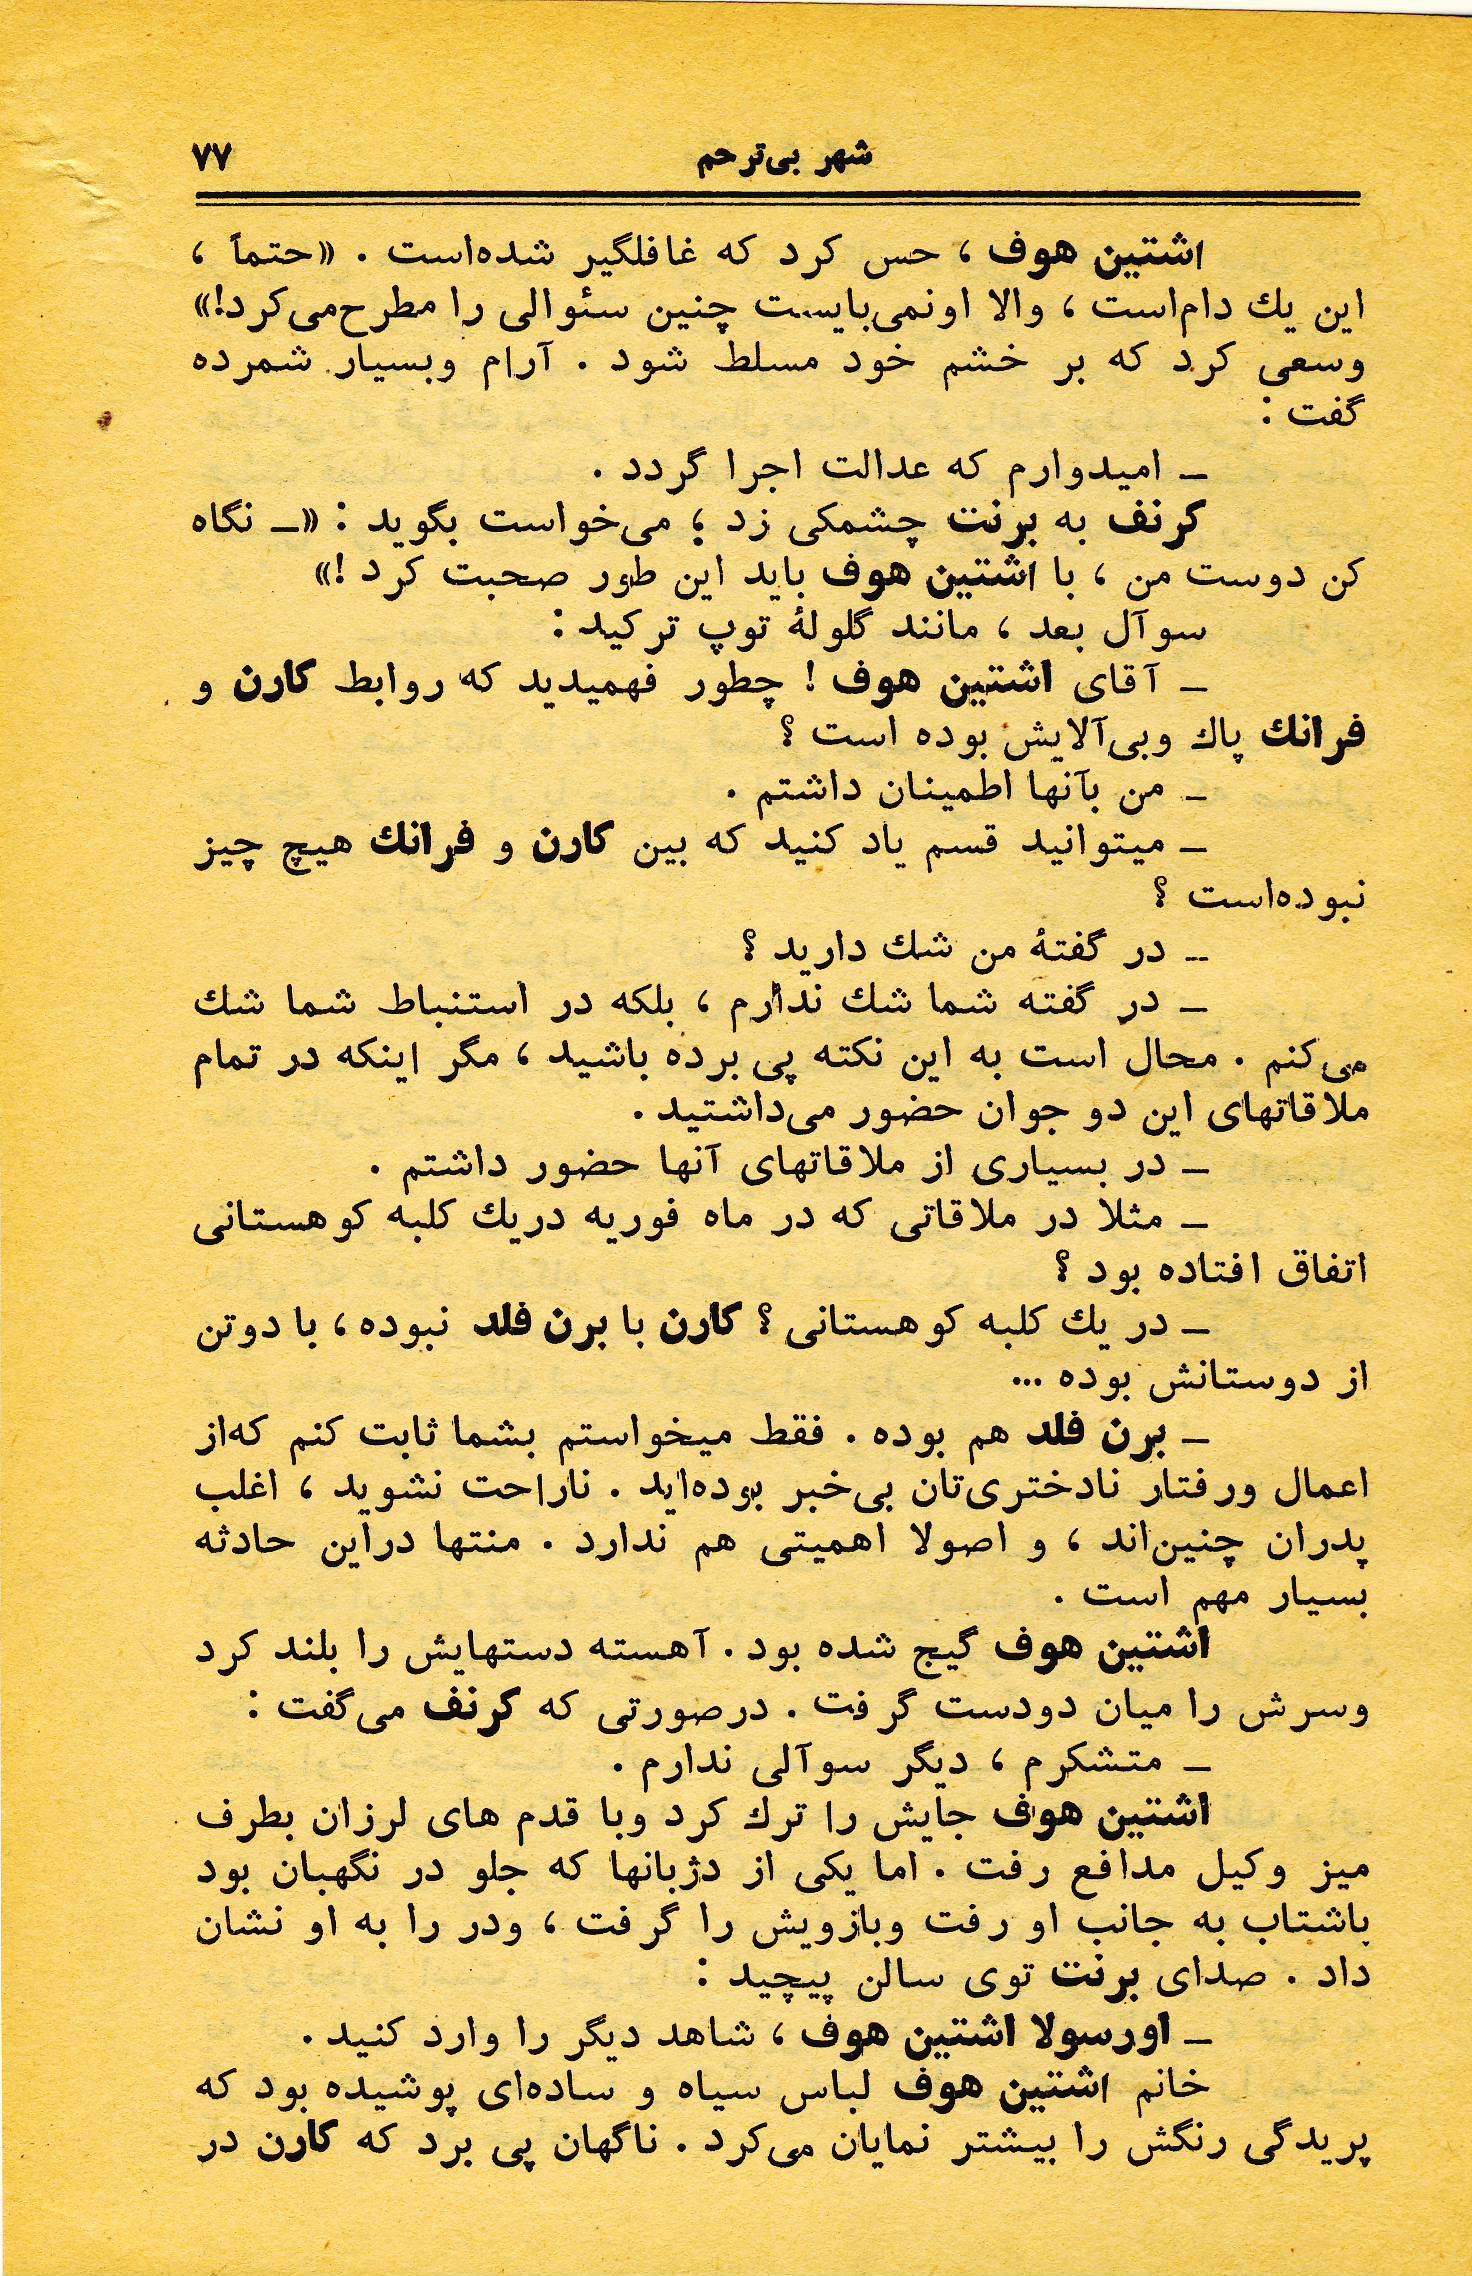 شهر بی‌ترحم ۷۷
اشتین هوف ، حس کرد که غافلگیر شده‌است . «حتماً ،
این یك دام‌است ، والا اونمی‌بایست چنین سئوالی را مطرح‌می‌کرد!»
وسعی کرد که بر خشم خود مسلط شود . آرام وبسیار شمرده
گفت :
ـ امیدوارم که عدالت اجرا گردد .
کرنف به برنت چشمکی زد ؛ می‌خواست بگوید : «ـ نگاه
کن دوست من ، با اشتین هوف باید این طور صحبت کرد !»
سوآل بعد ، مانند گلولهٔ توپ ترکید :
ـ آقای اشتین هوف ! چطور فهمیدید که روابط کارن و
فرانك پاك وبی‌آلایش بوده است ؟
ـ من بآنها اطمینان داشتم .
ـ میتوانید قسم یاد کنید که بین کارن و فرانك هیچ چیز
نبوده‌است ؟
ـ در گفتهٔ من شك دارید ؟
ـ در گفته شما شك ندارم ، بلکه در استنباط شما شك
می‌کنم . محال است به این نکته پی برده باشید ، مگر اینکه در تمام
ملاقاتهای این دو جوان حضور می‌داشتید .
ـ در بسیاری از ملاقاتهای آنها حضور داشتم .
ـ مثلا در ملاقاتی که در ماه فوریه دریك کلبه کوهستانی
اتفاق افتاده بود ؟
ـ در یك کلبه کوهستانی ؟ کارن با برن فلد نبوده ، با دوتن
از دوستانش بوده ...
ـ برن فلد هم بوده . فقط میخواستم بشما ثابت کنم که‌از
اعمال ورفتار نادختری‌تان بی‌خبر بوده‌اید . ناراحت نشوید ، اغلب
پدران چنین‌اند ، و اصولا اهمیتی هم ندارد . منتها دراین حادثه
بسیار مهم است .
اشتین هوف گیج شده بود . آهسته دستهایش را بلند کرد
وسرش را میان دودست گرفت . درصورتی که کرنف می‌گفت :
ـ متشکرم ، دیگر سوآلی ندارم .
اشتین هوف جایش را ترك کرد وبا قدم های لرزان بطرف
میز وکیل مدافع رفت . اما یکی از دژبانها که جلو در نگهبان بود
باشتاب به جانب او رفت وبازویش را گرفت ، ودر را به او نشان
داد . صدای برنت توی سالن پیچید :
ـ اورسولا اشتین هوف ، شاهد دیگر را وارد کنید .
خانم اشتین هوف لباس سیاه و ساده‌ای پوشیده بود که
پریدگی رنگش را بیشتر نمایان می‌کرد . ناگهان پی برد که کارن در